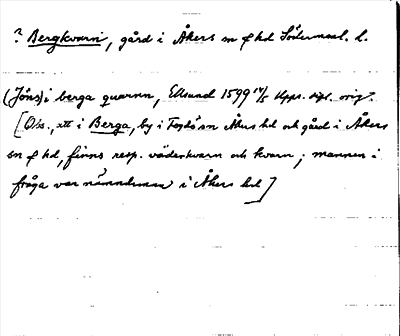 ? Bergkvarn, gård i Åkers sn o hd Södermanl. l.
(Jöns) i berga quarnn, Eksund 1599 14/5 Upps. dipl. orig.
[Obs., att i Berga, by i Fogdö sn Åkers hd och gård i Åkers
sn o hd, finns resp. väderkvarn och kvarn; mannen i
fråga var nämndeman i Åkers hd]